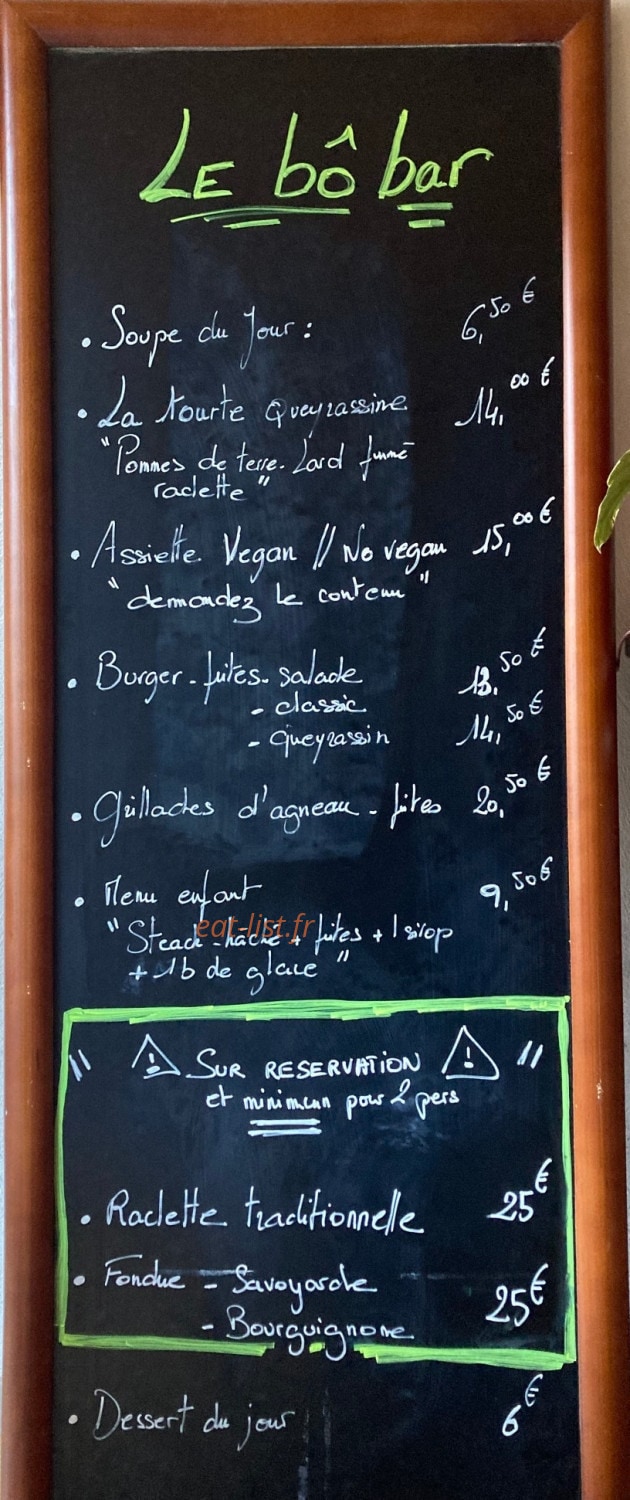 LE bô bar
• Soupe du Jour : 6,50 €
• La tourte Queyrassine 14,00 €
"Pommes de terre. Lard fumé
raclette"
• Assiette Vegan // No vegan 15,00 €
"demandez le contenu"
• Burger - frites - salade
- classic 13,50 €
- Queyrassin 14,50 €
• Grillades d'agneau - frites 20,50 €
• Menu enfant 9,50 €
eat-list.fr
"Steack-haché + frites + 1 sirop
+ 1b de glace"
" ⚠ SUR RESERVATION ⚠ "
et minimum pour 2 pers
• Raclette traditionnelle 25€
• Fondue - Savoyarde
- Bourguignone 25€
• Dessert du jour 6€